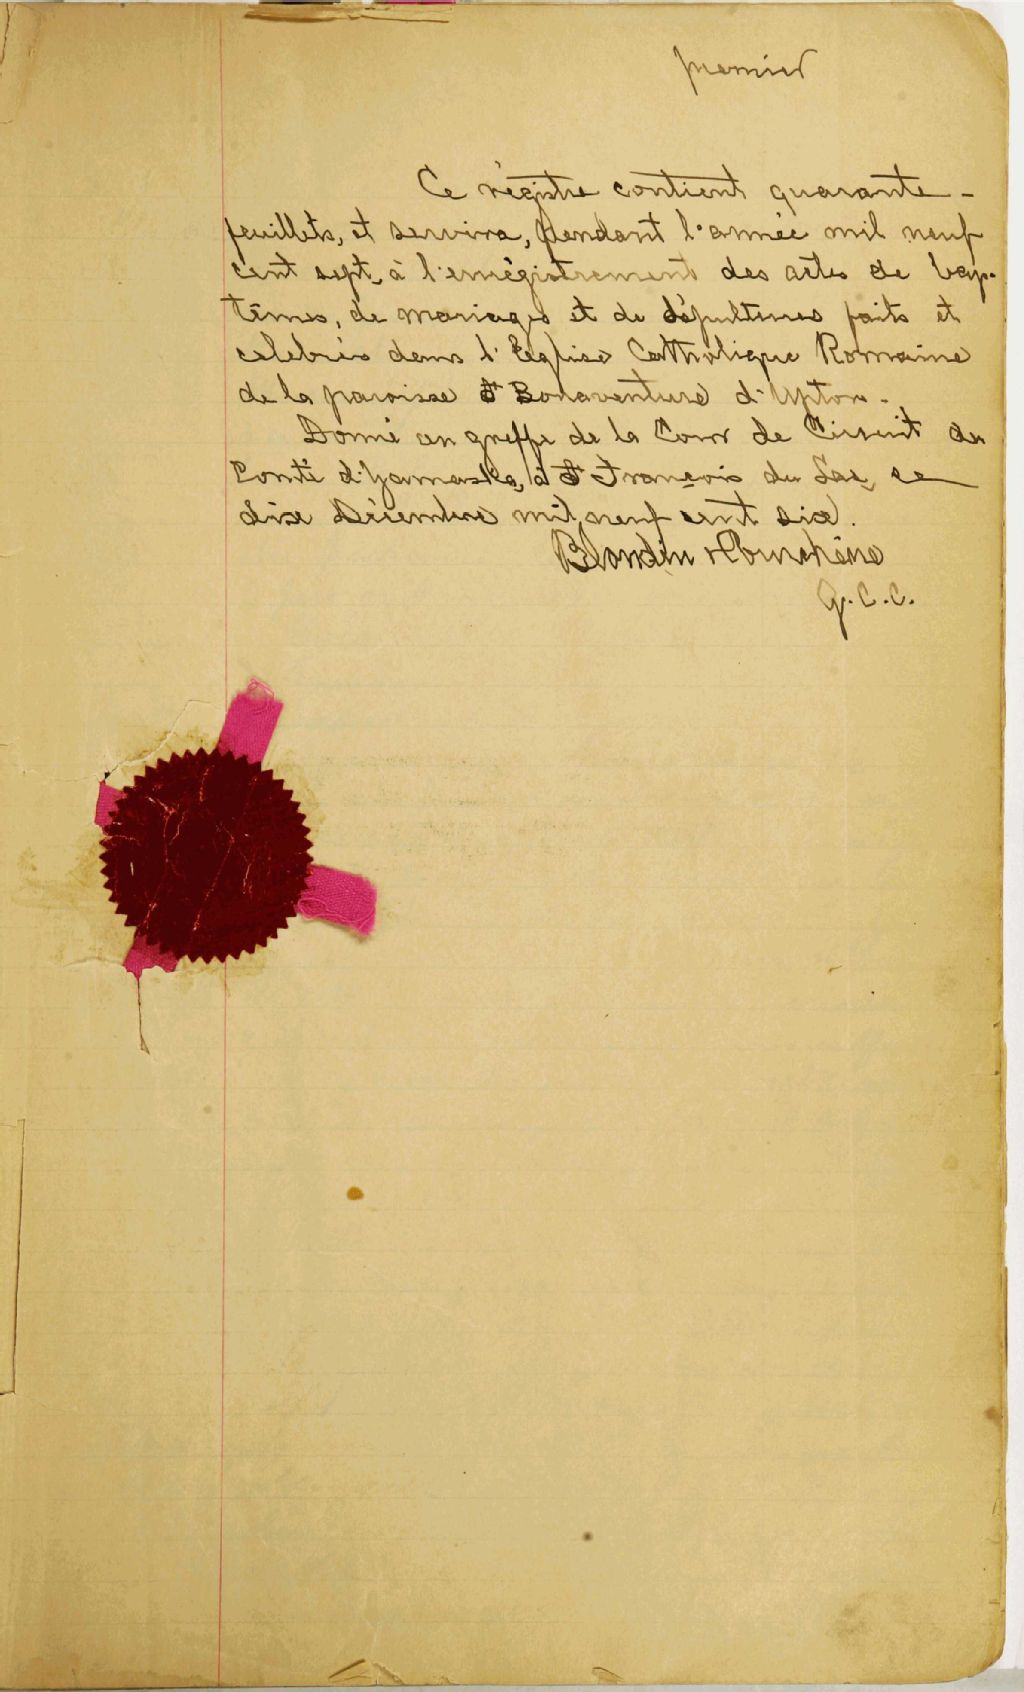 premier
Ce régistre contient quarante -
feuillets, et servira, pendant l'année mil neuf
cent sept, à l'enrégistrement des actes de bap-
têmes, de mariages et de sépultures faits et
célébrés dans l'Eglise Catholique Romaine
de la paroisse St Bonaventure d'Upton.
Donné au greffe de la Cour de Circuit du
Comté d'Yamaska, à St François du Lac, ce
dix Décembre mil neuf cent six.
Blondin &
G. C. C.